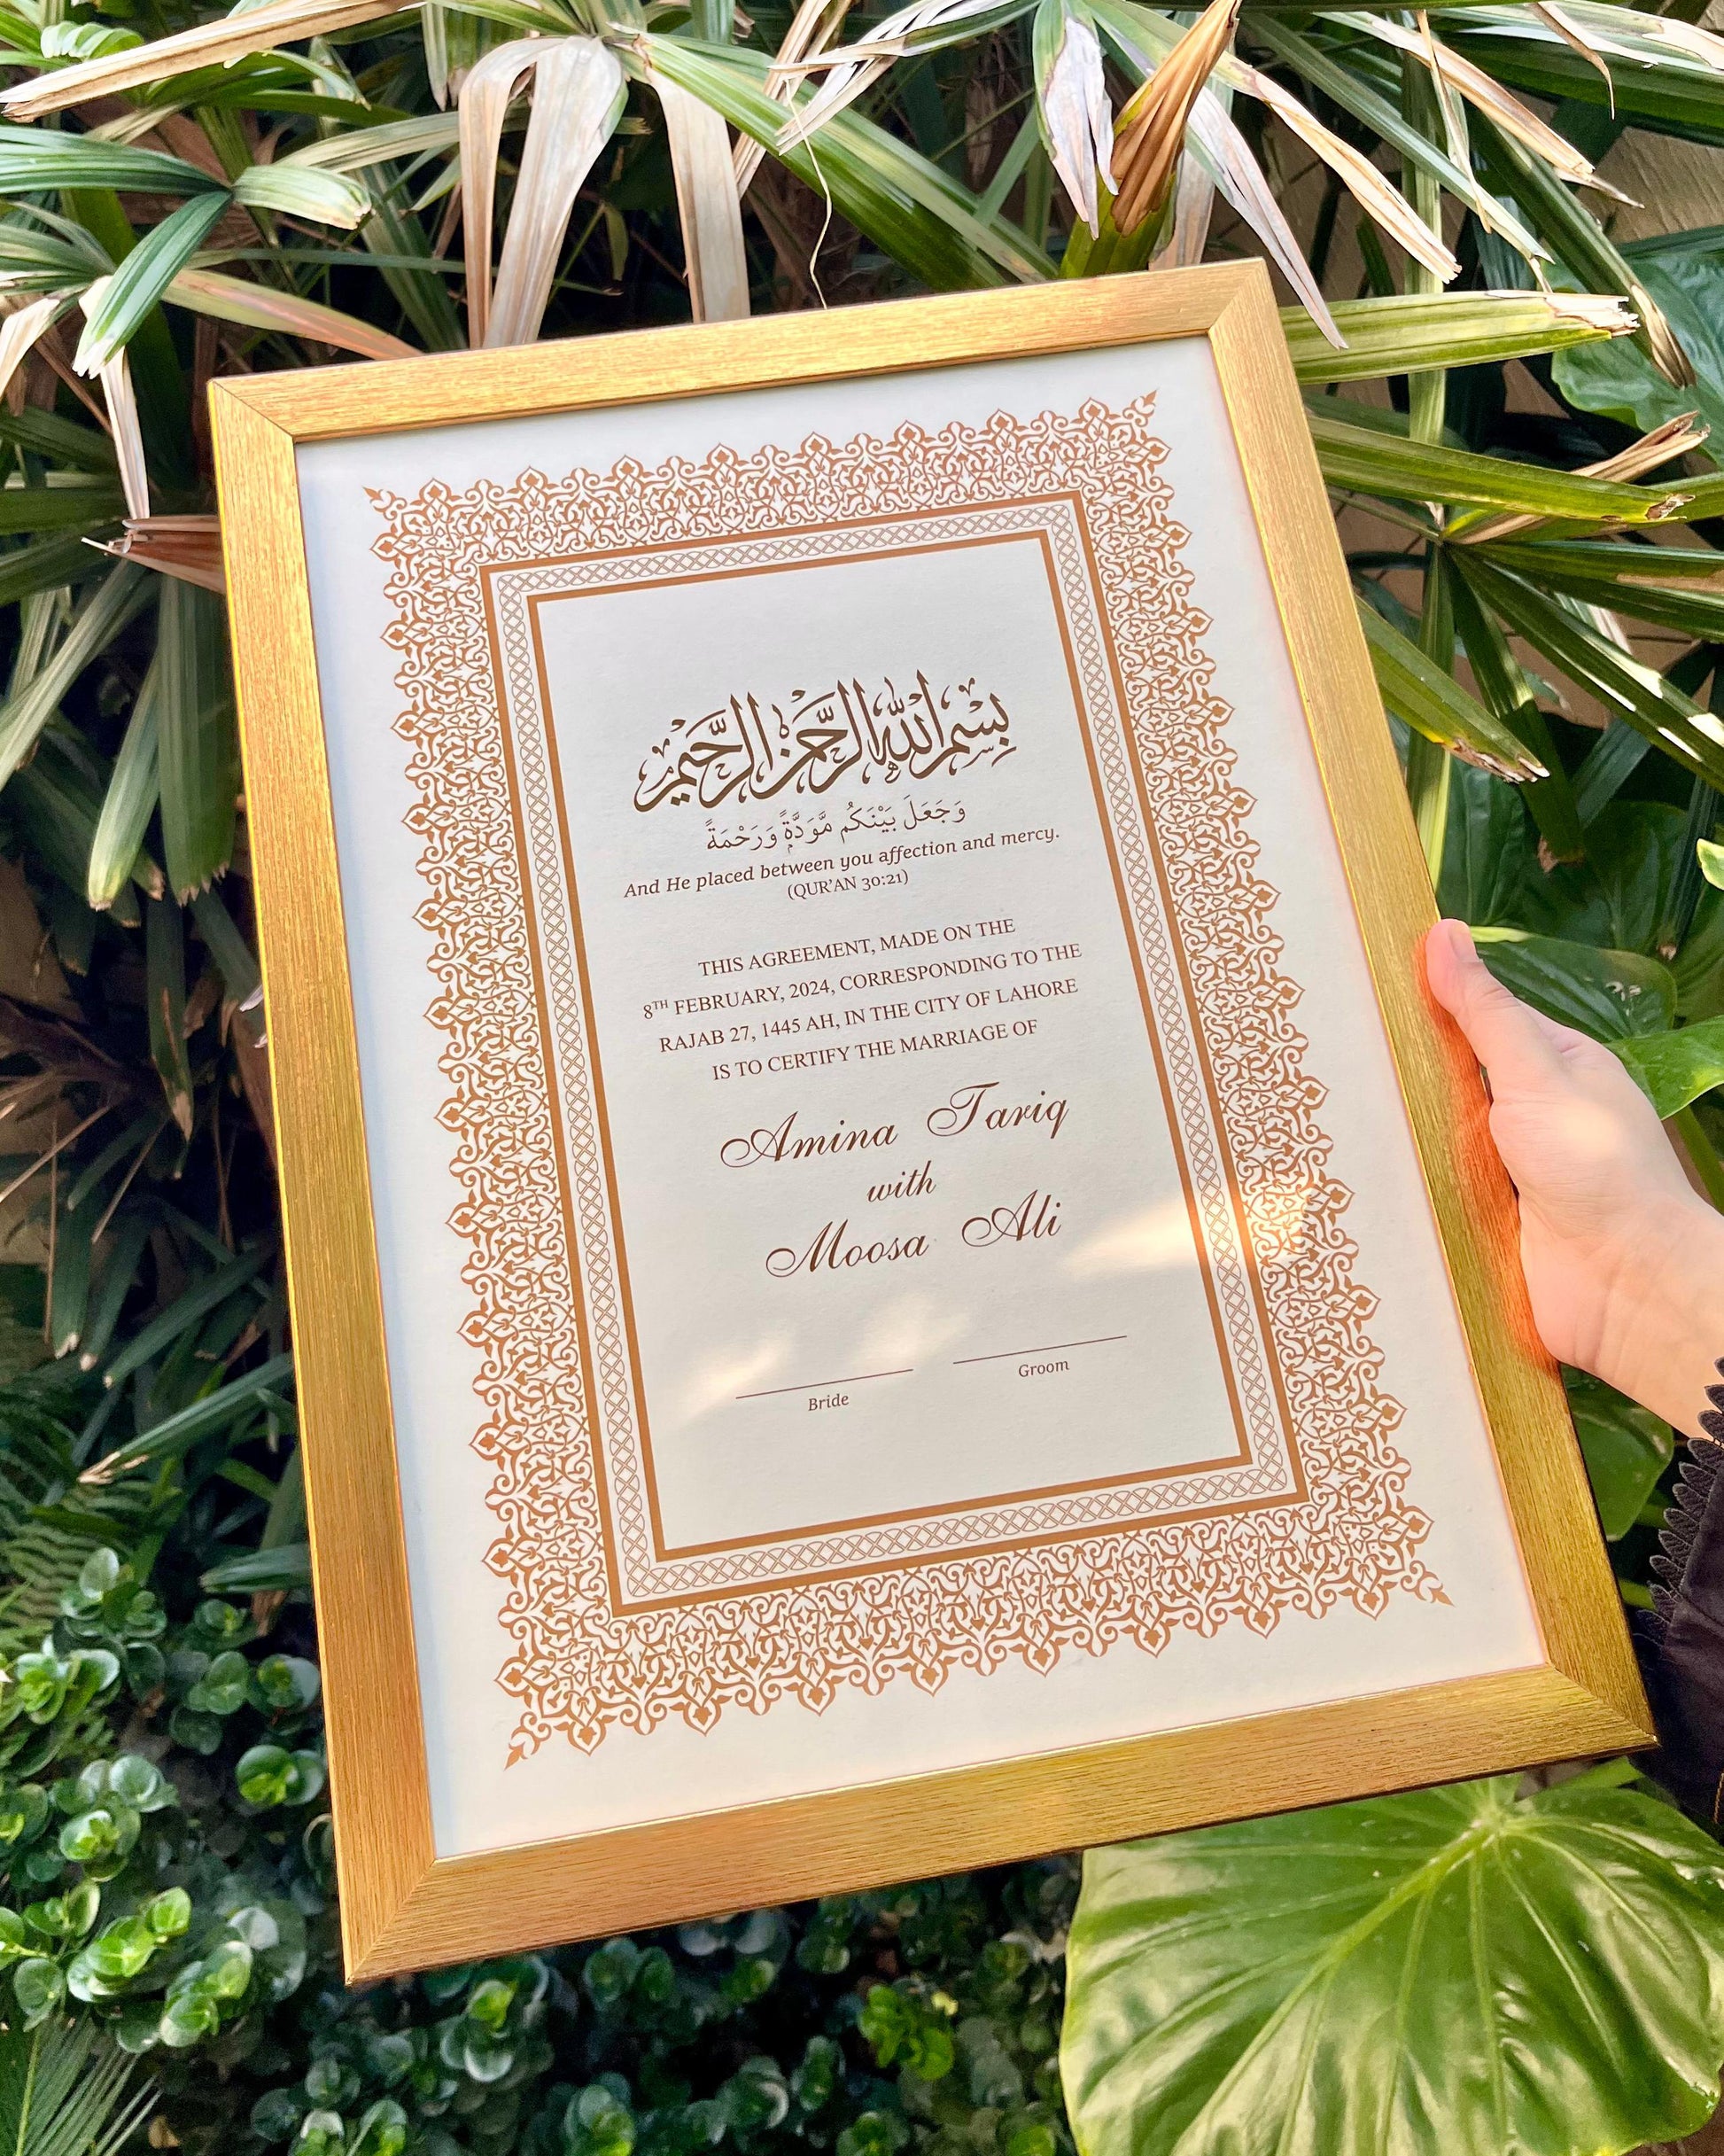 بِسْمِ اللهِ الرَّحْمٰنِ الرَّحِيْمِ
وَجَعَلَ بَيْنَكُم مَّوَدَّةً وَرَحْمَةً
And He placed between you affection and mercy.
(QUR'AN 30:21)
THIS AGREEMENT, MADE ON THE
8TH FEBRUARY, 2024, CORRESPONDING TO THE
RAJAB 27, 1445 AH, IN THE CITY OF LAHORE
IS TO CERTIFY THE MARRIAGE OF
Amina Tariq
with
Moosa Ali
Bride
Groom